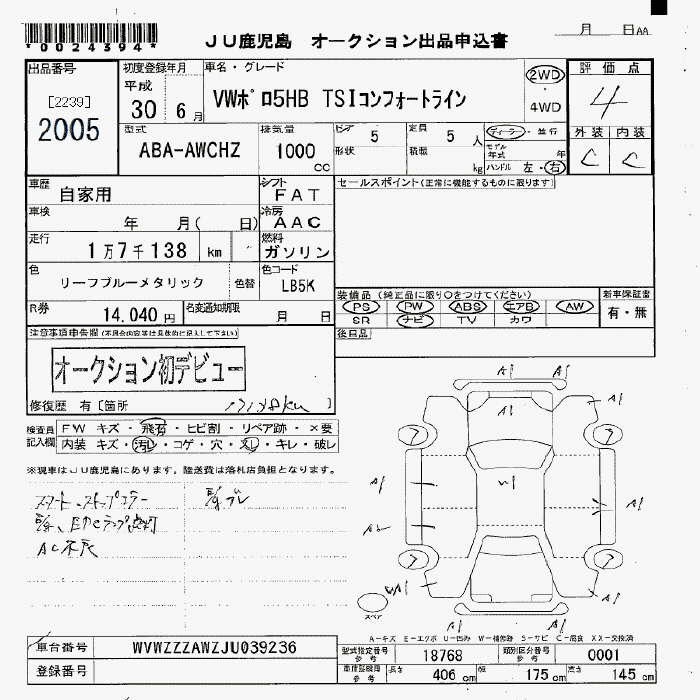 *0024394*
JU鹿児島 オークション出品申込書
月 日AA
出品番号
[2239]
2005
初度登録年月
平成
30 6月
車名・グレード
VWポロ5HB TSIコンフォートライン
2WD
・
4WD
評価点
4
外装 内装
C C
型式
ABA-AWCHZ
排気量
1000
cc
ドア 5
形状
定員 5 人
積載 kg
ディーラー・並行
モデル年式 年
ハンドル 左・右
車歴
自家用
シフト
FAT
車検
年 月( 日)
冷房
AAC
走行
1万7千138 km
燃料
ガソリン
色
リーフブルーメタリック
色替
色コード
LB5K
R券
14,040円
名変通知期限
月 日
セールスポイント(正常に機能するものに限ります)
装備品(純正品に限り○をつけてください)
PS PW ABS エアB AW
SR ナビ TV カワ
新車保証書
有・無
後日品
注意事項申告欄(不具合内容等は具体的に記入して下さい)
オークション初デビュー
修復歴 有〔箇所 〕
検査員記入欄
FW キズ・飛石・ヒビ割・リペア跡・×要
内装 キズ・汚れ・コゲ・穴・スレ・キレ・破レ
※現車はJU鹿児島にあります。陸送費は落札店負担となります。
スタート、ストップエラー
AC不良
A1 A1
A1
A1
A1
A1
A1
スペア
A-キズ E-エクボ U-凹み W-補修跡 S-サビ C-腐食 XX-交換済
車台番号
WVWZZZAWZJU039236
登録番号
型式指定番号 参考
18768
類別区分番号 参考
0001
車庫証明用 参考
長さ 406 cm
幅 175 cm
高さ 145 cm